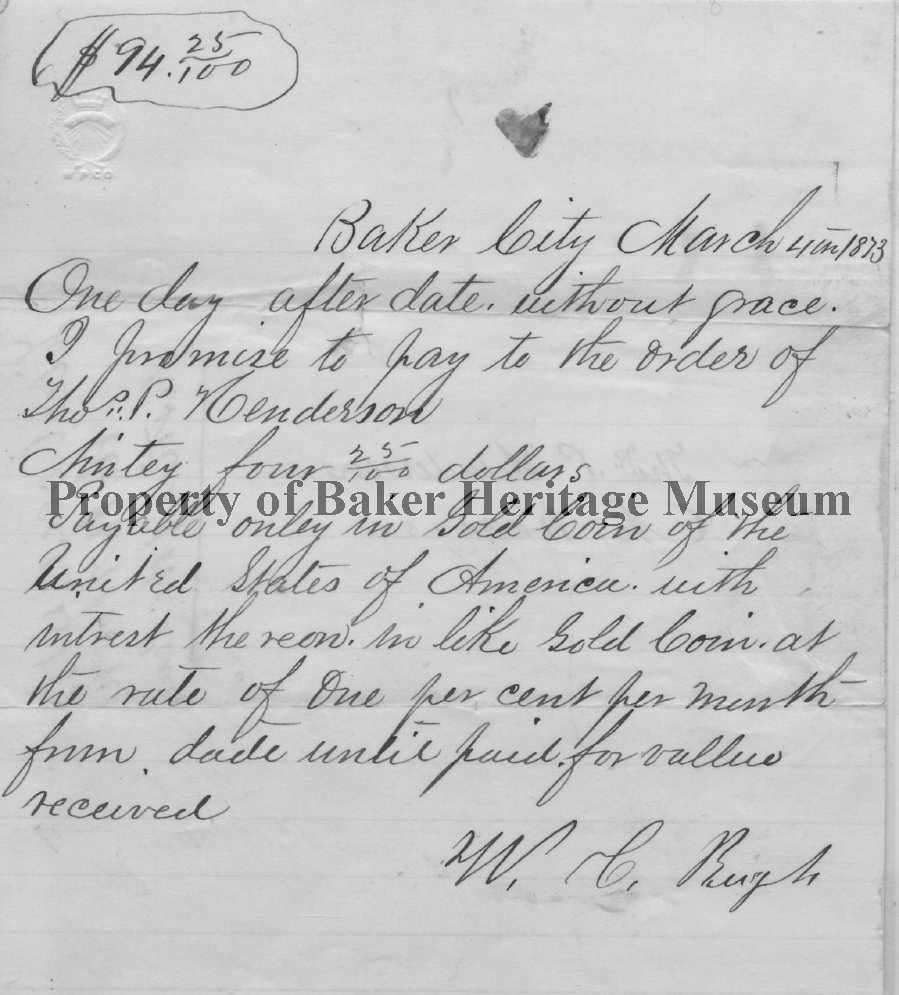 $ 94. 25/100
WPCO
Baker City March 4th 1873
One day after date. without grace.
I promise to pay to the order of
Thos. P. Henderson
Nintey four 25/100 dollars
Property of Baker Heritage Museum
Payable onley in Gold Coin of the
United States of America. with
intrest thereon. in like Gold Coin. at
the rate of One per cent per month
from date until paid. for vallue
received
W. C.